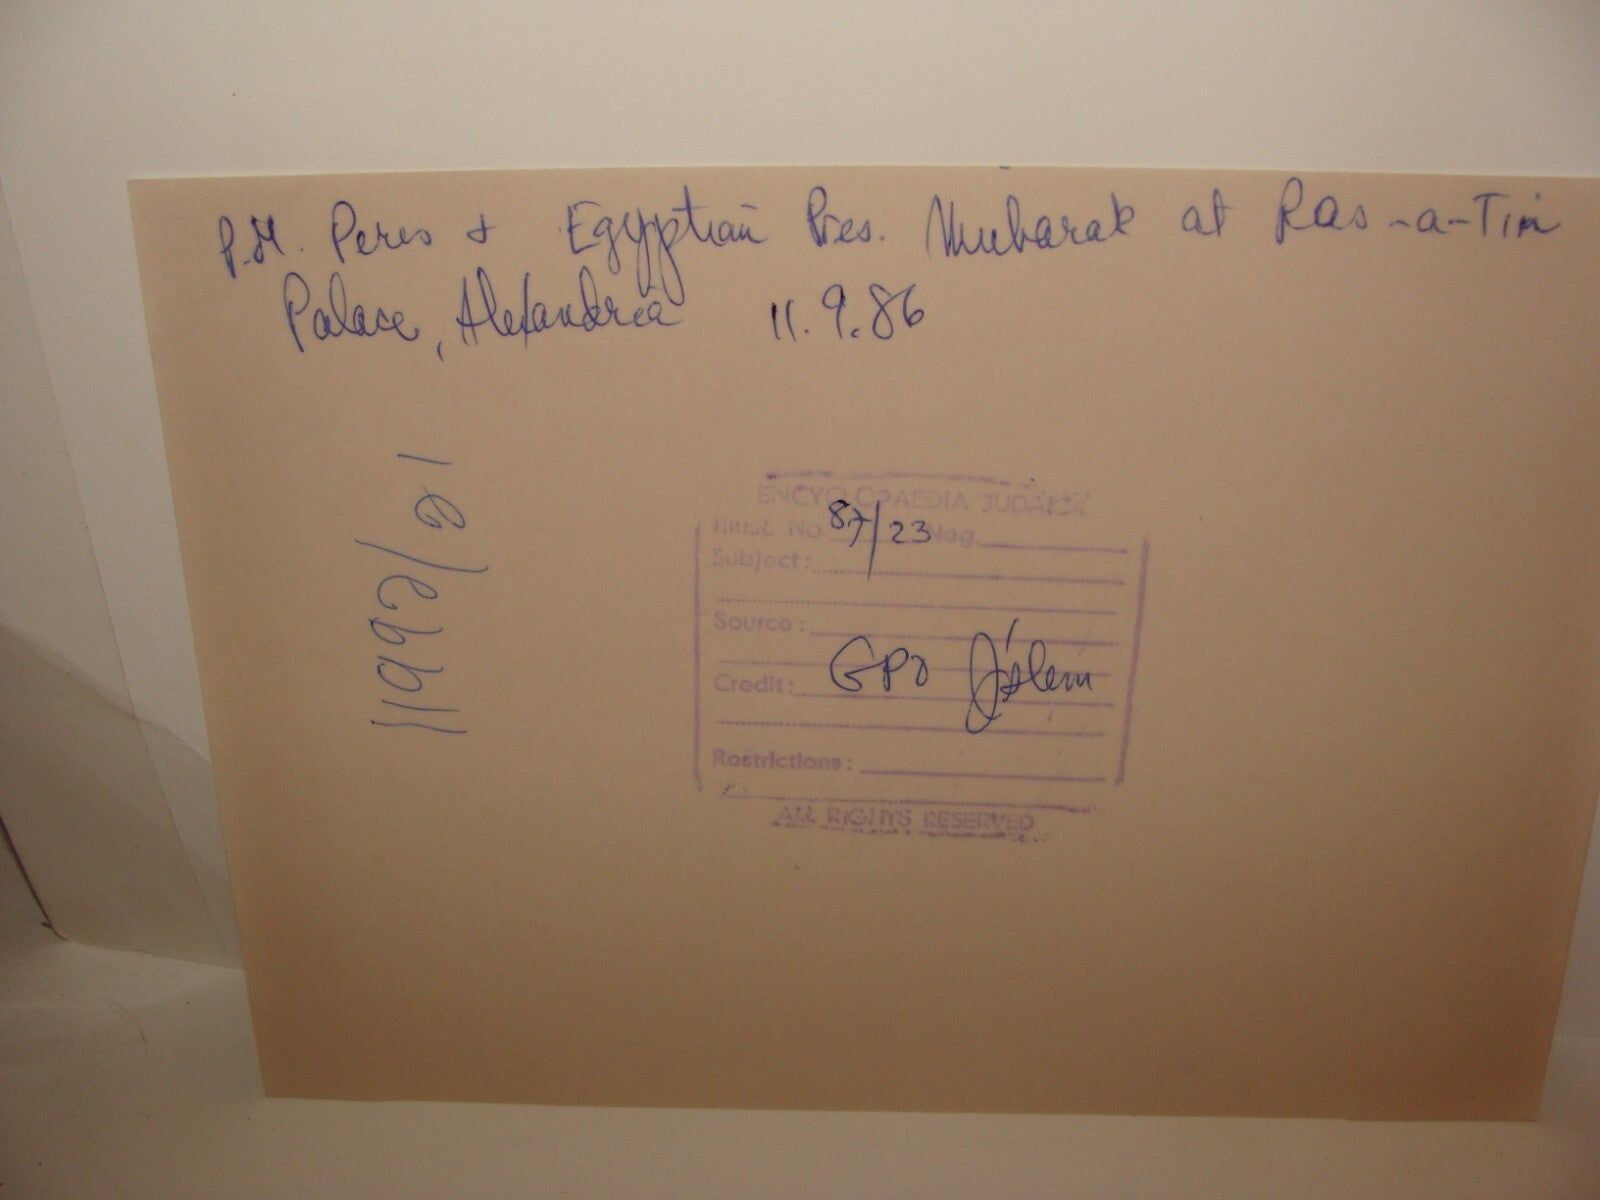 P.M. Peres & Egyptian Pres. Mubarak at Ras-a-Tin
Palace, Alexandria 11.9.86
ENCYCLOPAEDIA JUDAICA
Illust. No. 87/23 Neg.
Subject:
Source:
GPO J'slem
Credit:
Restrictions:
ALL RIGHTS RESERVED